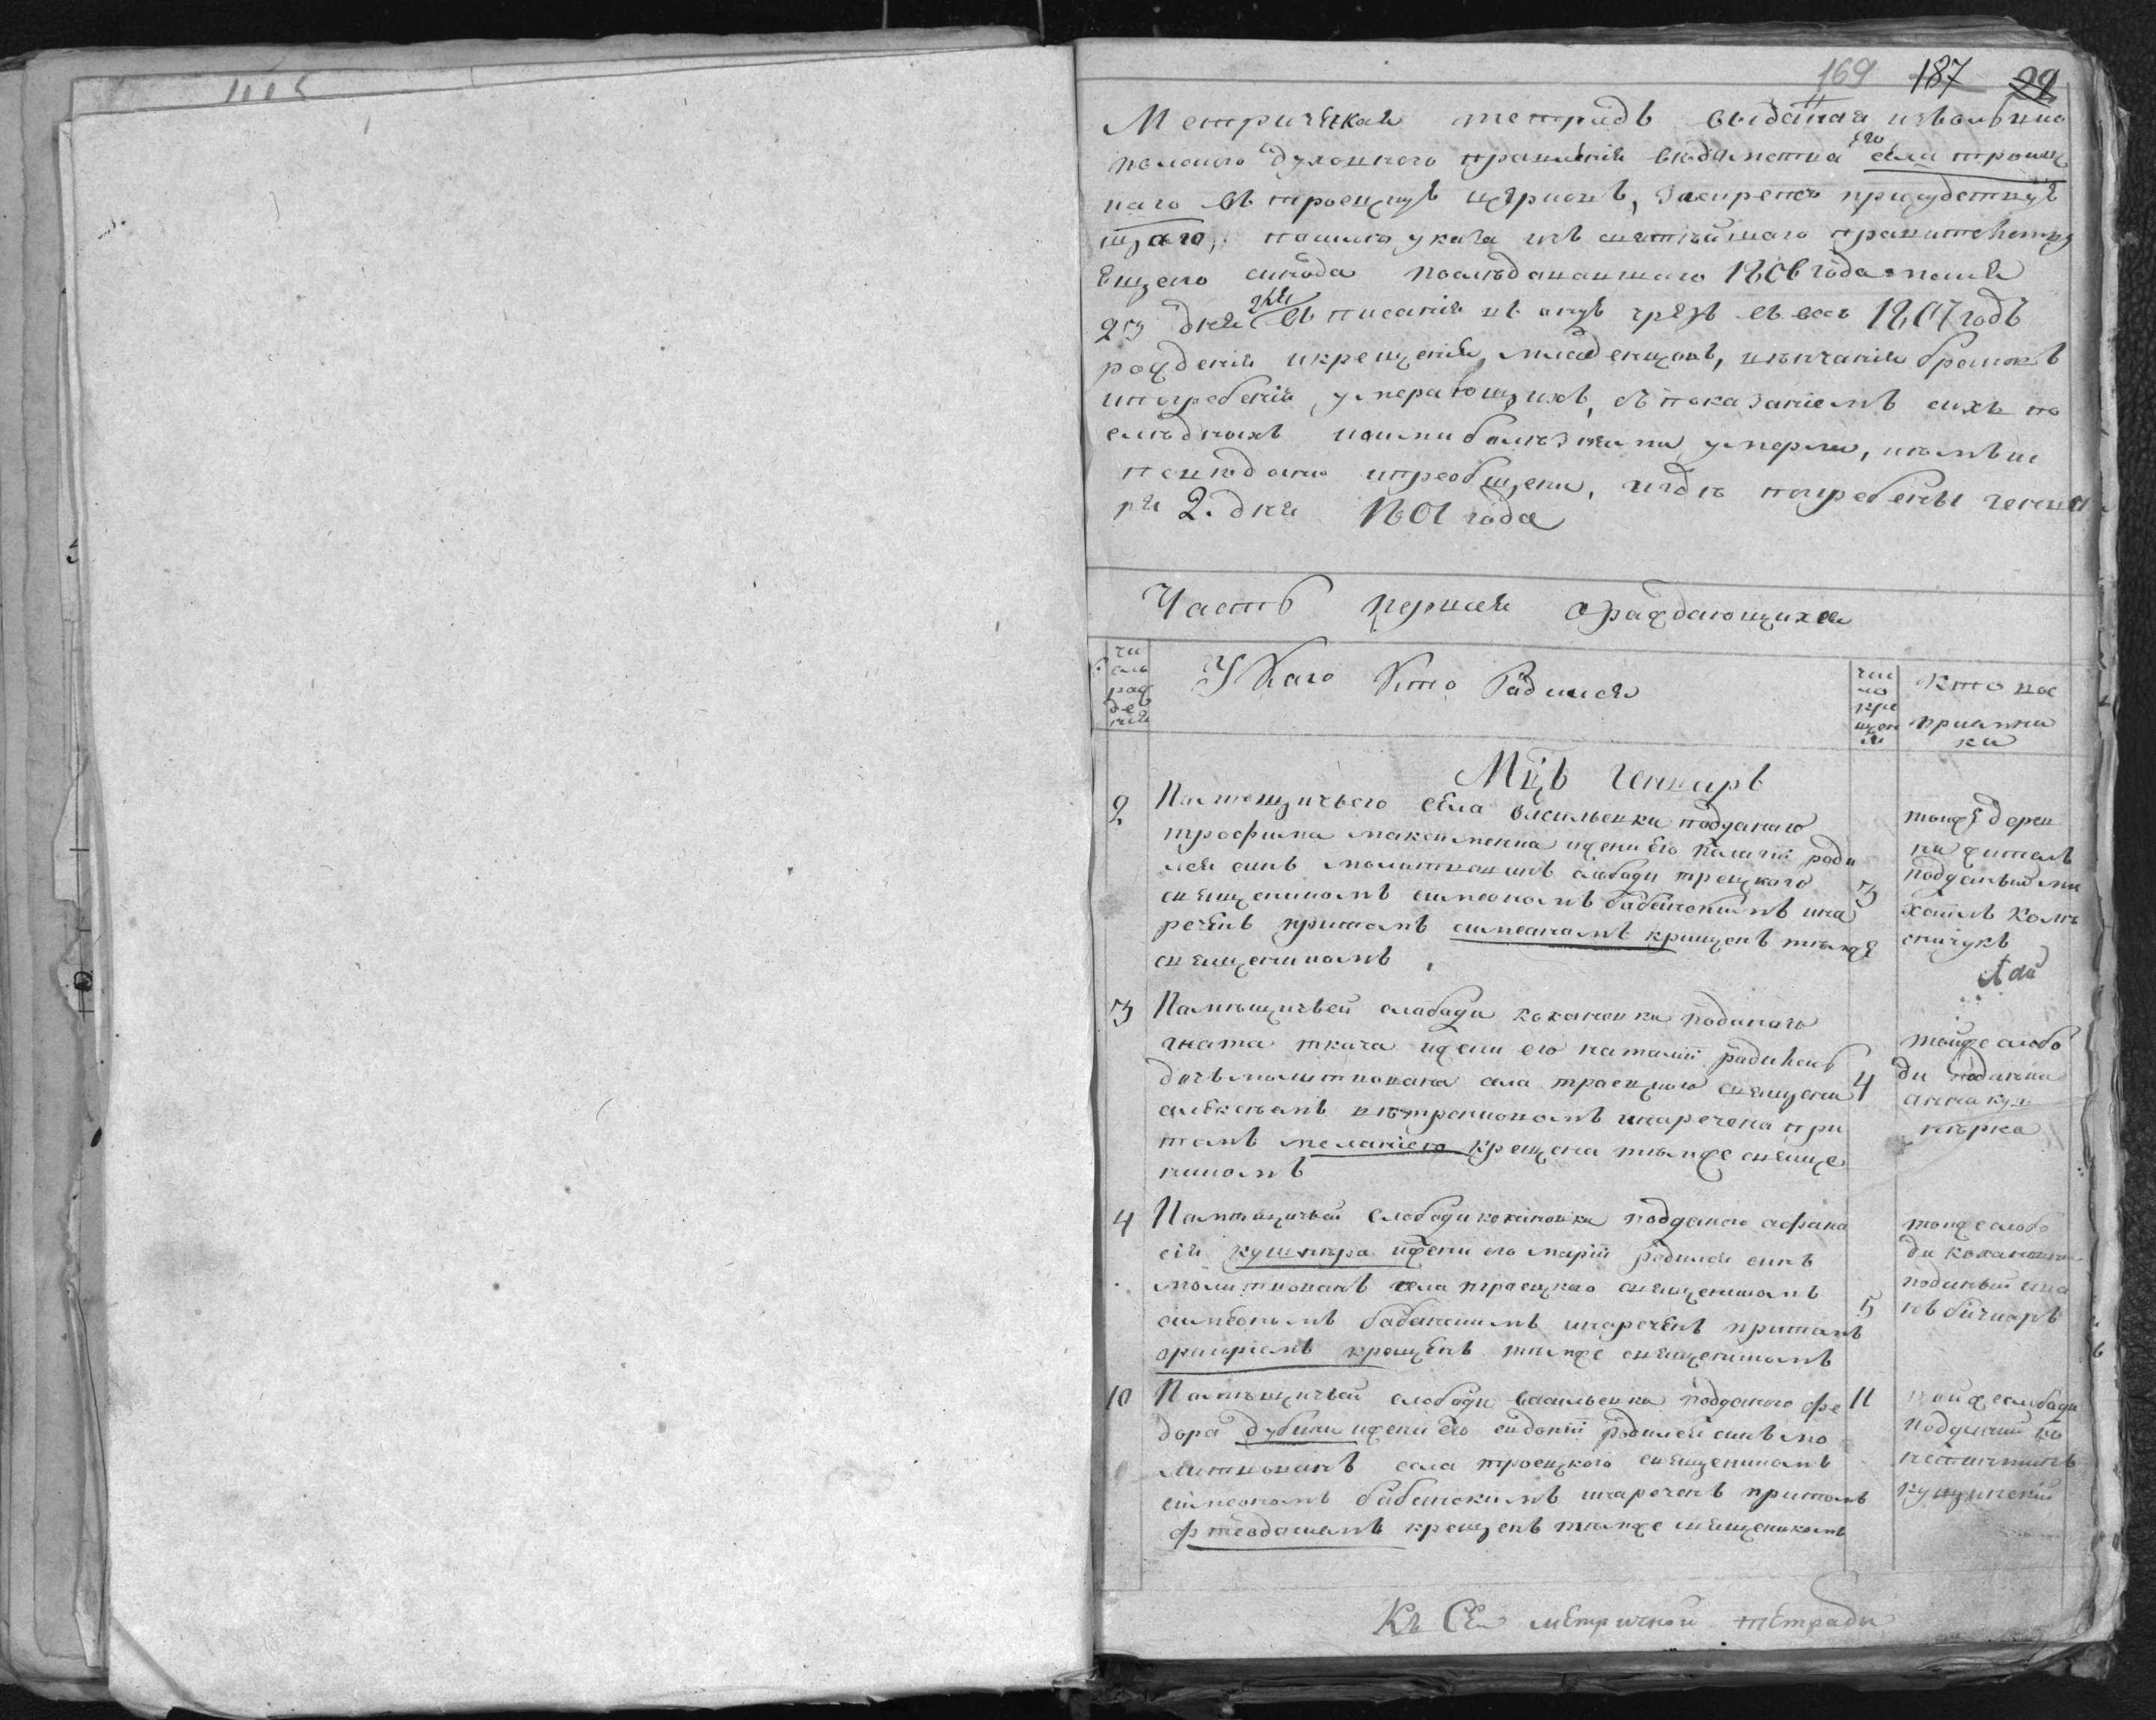 169 187 99
Метрическая тетрадь выданная изволыно
полского духовного правления ведомства его села троиц
каго въ троецкую церковь,
щаго, посилѣ указа изъ святѣйшаго правителству
ющего синода последовавшаго 1806 года
23 дня для въписания въ оную чрезъ весь 1807 годъ
рождения икрещения младенцовъ, венчания браковъ
ипогребения умерающихъ, съ показаниемъ сихъ по
следнихъ коими болезнями умерли, икѣмъ ис
поведани ипреобщени, игдѣ погребены генва
ря 2. дня 1807 года
Часть первая ораждающихся
чи
сль
рож
де
ния
У Каго Кто Родился
чис
ло
кре
щен
ия
кто вос
приемни
ки
Мцъ Генваръ
2
Памещичьего села василевки подданого
трофима максименка ижени его палагии роди
лся синъ молитвованъ слободи троецкого
священикомъ симеономъ бабанскимъ ина
реченъ притомъ симеаномъ крищенъ тимже
священикомъ
3
тоиже дерев
ни житель
подданый ми
хаилъ Коле
сничукъ
3
Памѣщичьей слабоди кохановки поданого
гната ткача ижени его наталии радилась
дочь молитвована села троецкого священи
алексѣемъ петрановомъ инаречена при
томъ меланиею крещена тимже свяще
никомъ
4
тоиже слобо
ди поданна
анна ку
нѣрка
4
Памѣщичьей слободи кохановки подданого афана
сия кушнѣра ижени его марии родился синъ
молитвованъ села троецкого священикомъ
симеономъ бабанскимъ инареченъ притомъ
григориемъ крещенъ тимже священикомъ
5
тоиже слобо
ди кохановки
поданый ива
нъ бичкаръ
10
Памѣщичьей слободи василевки подданого фе
дора дубини ижени его евдокии родился синъ мо
литвованъ села троецкого священикомъ
симеономъ бабанскимъ инареченъ притомъ
фтеодасиемъ крещенъ тимже священикомъ
11
тоиже слободи
подданий ко
нстантинъ
кущинский
Къ Сей метричной тетради